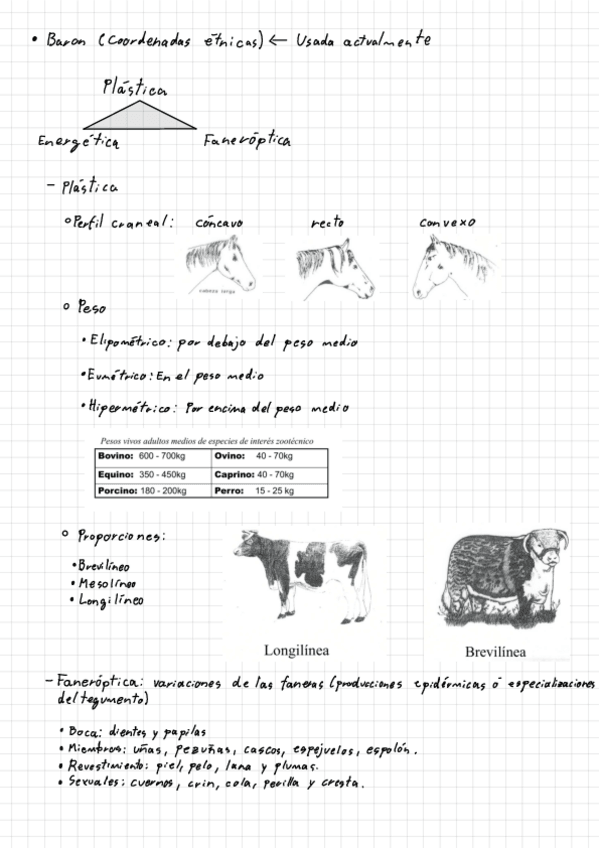 • Baron (Coordenadas étnicas) ← Usada actualmente
Plástica
Energética Faneróptica
- Plástica
° Perfil craneal: cóncavo recto convexo
° Peso
• Elipométrico: por debajo del peso medio
• Eumétrico: En el peso medio
• Hipermétrico: Por encima del peso medio
Pesos vivos adultos medios de especies de interés zootécnico
Bovino: 600 - 700kg Ovino: 40 - 70kg
Equino: 350 - 450kg Caprino: 40 - 70kg
Porcino: 180 - 200kg Perro: 15 - 25 kg
° Proporciones:
• Brevilíneo
• Mesolíneo
• Longilíneo
Longilínea Brevilínea
- Faneróptica: variaciones de las faneras (producciones epidérmicas o especializaciones
del tegumento)
• Boca: dientes y papilas
• Miembros: uñas, pezuñas, cascos, espejuelos, espolón.
• Revestimiento: piel, pelo, lana y plumas.
• Sexuales: cuernos, crin, cola, perilla y cresta.